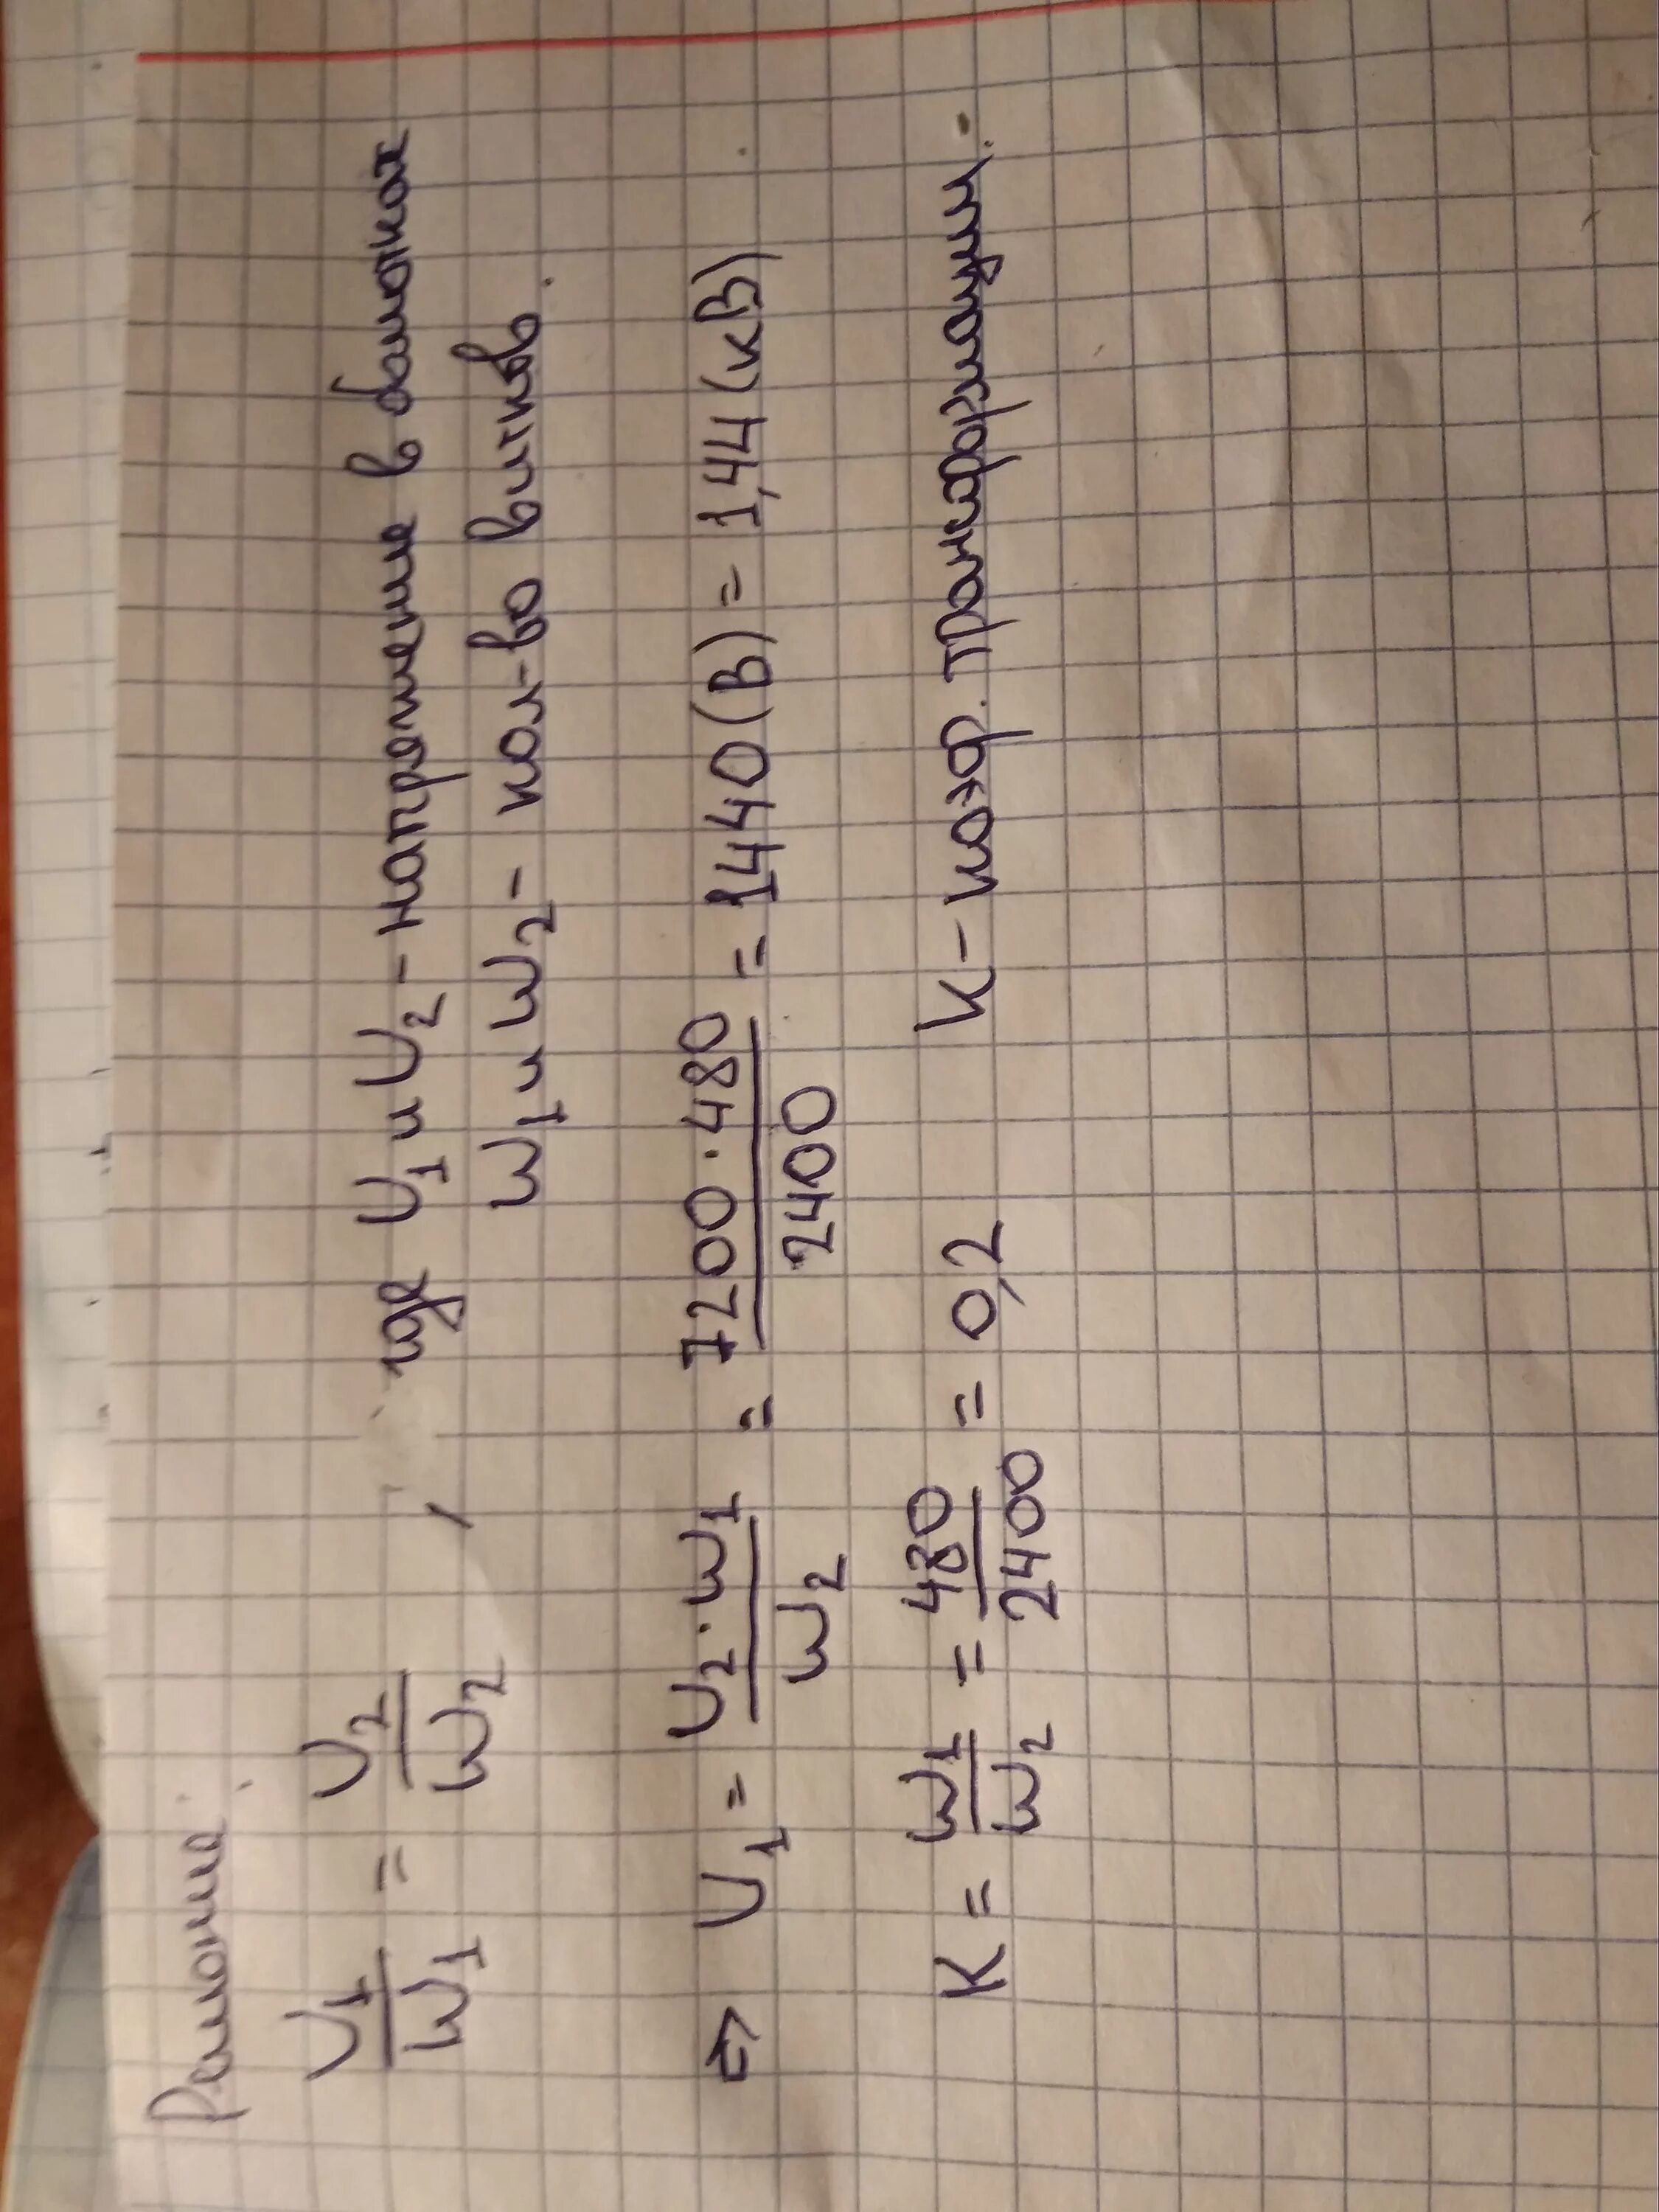 Решение
U₁/W₁ = U₂/W₂, где U₁ и U₂ - напряжение в обмотках
W₁ и W₂ - кол-во витков.
⇒ U₁ = U₂·W₁/W₂ = 7200·480/2400 = 1440(В) = 1,44(кВ)
K = W₁/W₂ = 480/2400 = 0,2 K - коэф. трансформации.